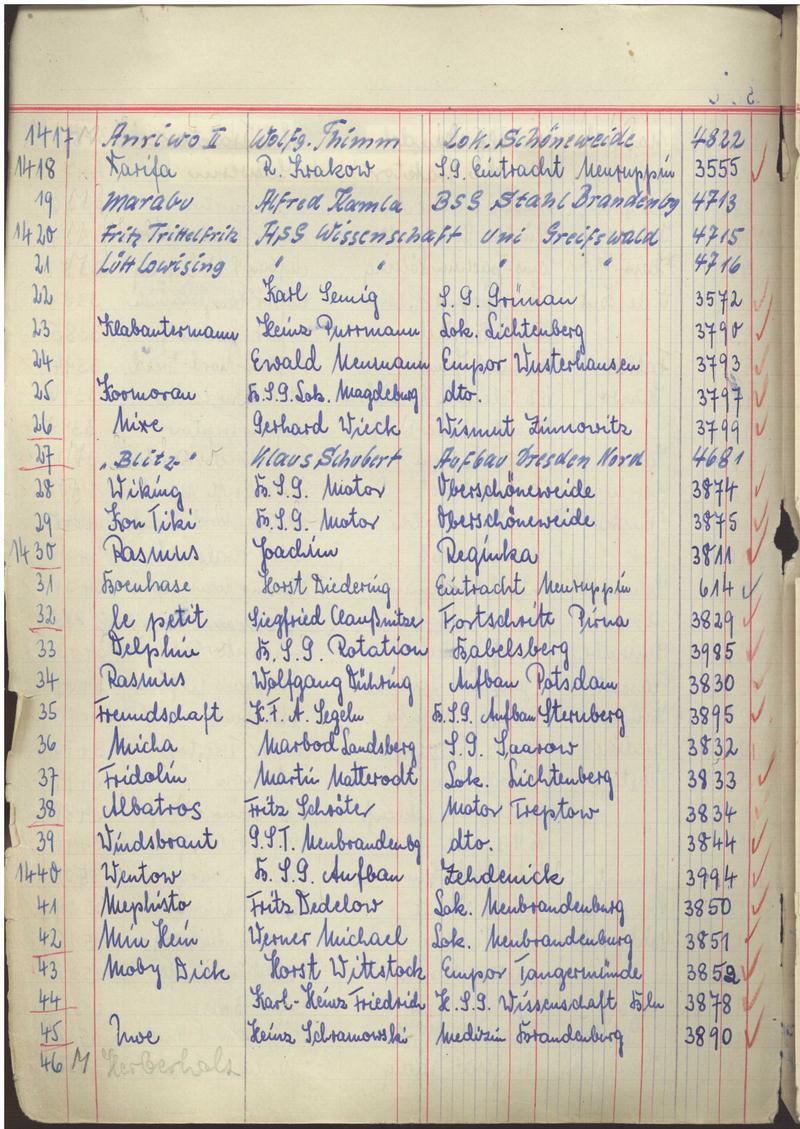 1417 Anriwo II Wolfg. Thimm Lok. Schöneweide 4822
1418 Karifa R. Krakow S.G. Eintracht Neuruppin 3555
19 Marabu Alfred Kamla BSG Stahl Brandenbg 4713
1420 Fritz Trittelfritz HSG Wissenschaft Uni Greifswald 4715
21 Lütt Lowising " " " " 4716
22 Karl Semig S.G. Grünau 3572
23 Klabautermann Heinz Purrmann Lok. Lichtenberg 3790
24 Ewald Neumann Empor Wusterhausen 3793
25 Kormoran B.S.G. Lok. Magdeburg dto. 3797
26 Nixe Gerhard Wieck Wismut Zinnowitz 3799
27 "Blitz" Klaus Schubert Aufbau Dresden Nord 4681
28 Wiking B.S.G. Motor Oberschöneweide 3874
29 Kon Tiki B.S.G. Motor Oberschöneweide 3875
1430 Rasmus Joachim Reginka 3811
31 Boenhase Horst Diedering Eintracht Neuruppin 614
32 le petit Siegfried Claußnitzer Fortschritt Pirna 3829
33 Delphin B.S.G. Rotation Babelsberg 3985
34 Rasmus Wolfgang Dühring Aufbau Potsdam 3830
35 Freundschaft K.F.A. Segeln B.S.G. Aufbau Sternberg 3895
36 Micha Marbod Landsberg S.G. Saarow 3832
37 Fridolin Martin Matterodt Lok. Lichtenberg 3833
38 Albatros Fritz Schröter Motor Treptow 3834
39 Windsbraut G.S.T. Neubrandenbg dto. 3844
1440 Wentow B.S.G. Aufbau Zehdenick 3994
41 Mephisto Fritz Dedelow Lok. Neubrandenburg 3850
42 Min Hein Werner Michael Lok. Neubrandenburg 3851
43 Moby Dick Horst Wittstock Empor Tangermünde 3852
44 Karl-Heinz Friedrich H.S.G. Wissenschaft Bln 3878
45 Uwe Heinz Schramowski Medizin Brandenbirg 3890
46 M